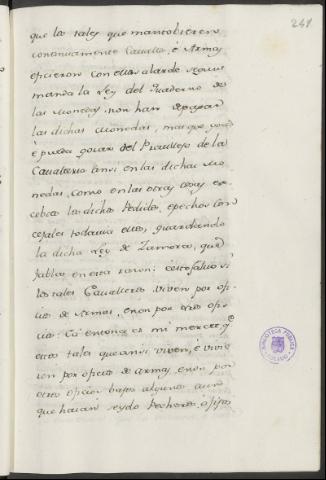 241
que los tales que mantobieren
continuamente Cavallo, è Armas
eficieron con ellos alarde segun
manda la Ley del Quaderno de
las Monedas non han de pagar
las dichas monedas, mas que gocen
è pueda gocar del Previllejo de la
Cavalleria ansi en las dichas Mo-
nedas, como en las otras cosas ex-
cebto los dichos Pedidos, e pechos Con-
cejales todavia ellos, guardando
la dicha Ley de Zamora, que
fabla en esta razon: è esto salvo si
los tales Cavalleros viven por ofi-
cios de Armas, è non por otros ofi-
cios: Ca entonce es mi merced, q.e
estos tales que ansi viven, è vivie-
ren por oficio de armas, è non por
otros oficios bajos algunos, aun
que hayan seydo Pecheros, ò fijos
BIBLIOTECA PUBLICA
TOLEDO